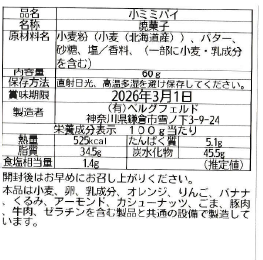 品名 小ミミパイ
名称 焼菓子
原材料名 小麦粉(小麦(北海道産))、バター、
砂糖、塩/香料、(一部に小麦・乳成分
を含む)
内容量 60g
保存方法 直射日光、高温多湿を避け保存してください。
賞味期限 2026年3月1日
製造者 (有)ベルグフェルド
神奈川県鎌倉市雪ノ下3-9-24
栄養成分表示 100g当たり
熱量 525kcal たんぱく質 5.1g
脂質 34.5g 炭水化物 45.5g
食塩相当量 1.4g (推定値)
開封後はお早めにお召し上がりください。
本品は小麦、卵、乳成分、オレンジ、りんご、バナナ
、くるみ、アーモンド、カシューナッツ、ごま、豚肉
、牛肉、ゼラチンを含む製品と共通の設備で製造して
います。